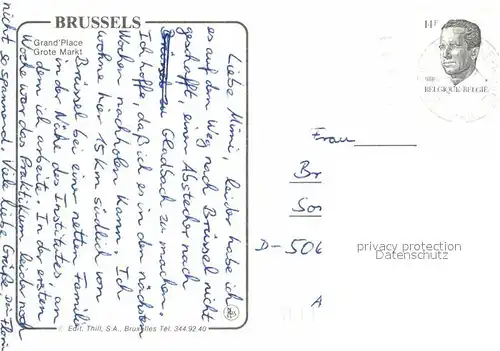 BRUSSELS
Grand'Place
Grote Markt
14F
BELGIQUE-BELGIË
Liebe Mimi, leider habe ich
es auf dem Weg nach Brüssel nicht
geschafft, einen Abstecher nach
Brüssel zu Gladbach zu machen.
Ich hoffe, daß ich es in den nächsten
Wochen nachholen kann. Ich
wohne hier 15 km südlich von
Brüssel bei einer netten Familie
in der Nähe des Institutes, an
dem ich arbeite. In der ersten
Woche war das Praktikum leider noch
nicht so spannend. Viele liebe Grüße
Frau
Br
Sor
D-506
A
privacy protection
Datenschutz
© Edit. Thill, S.A., Bruxelles Tél. 344.92.40